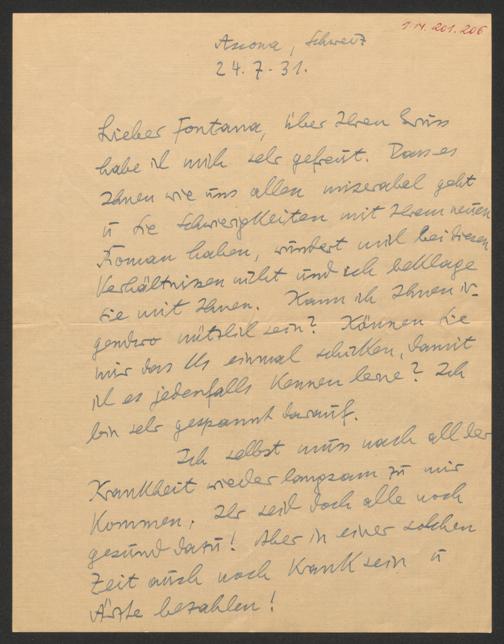 1 N. 201.206
Ascona, Schweiz
24.7.31.
Lieber Fontana, über Ihren Gruss
habe ich mich sehr gefreut. Dass es
Ihnen wie uns allen miserabel geht
u Sie Schwierigkeiten mit Ihrem neuen
Roman haben, wundert mich bei diesen
Verhältnissen nicht und ich beklage
sie mit Ihnen. Kann ich Ihnen ir-
gendwo nützlich sein? Können Sie
mir das Ms einmal schicken, damit
ich es jedenfalls kennen lerne? Ich
bin sehr gespannt darauf.
Ich selbst muss nach all der
Krankheit wieder langsam zu mir
kommen. Ihr seid doch alle noch
gesund dazu! Aber in einer solchen
Zeit auch noch krank sein u
Ärzte bezahlen!